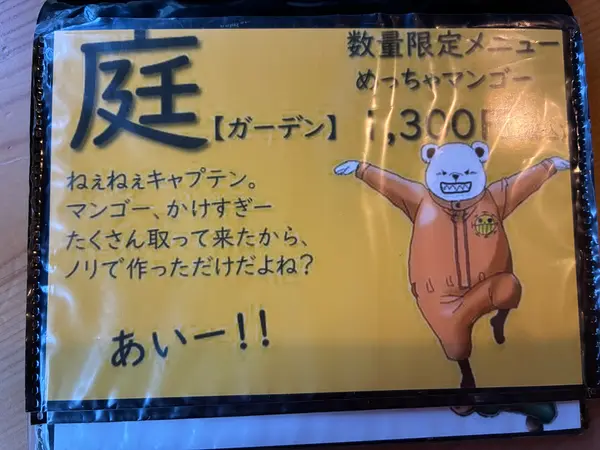 庭
【ガーデン】
数量限定メニュー
めっちゃマンゴー
1,300円
ねぇねぇキャプテン。
マンゴー、かけすぎー
たくさん取って来たから、
ノリで作っただけだよね?
あいー!!